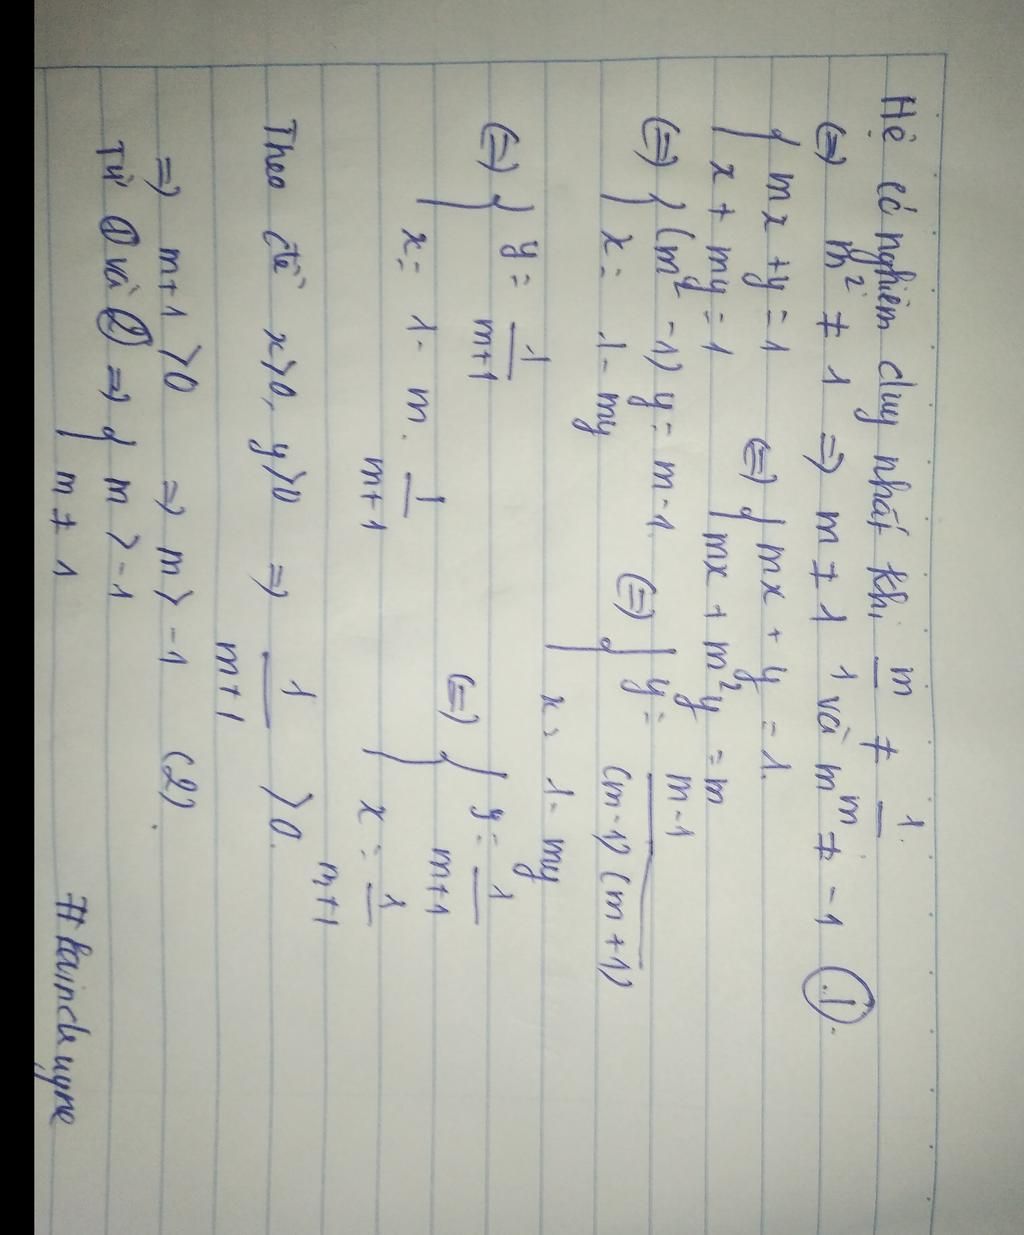 Hệ có nghiệm duy nhất khi m/1 ≠ 1/m.
(=) m² ≠ 1 => m ≠ 1 và m ≠ -1 (1).
{ mx + y = 1 (=) { mx + y = 1.
{ x + my = 1 { mx + m²y = m
(=) { (m² - 1) y = m - 1. (=) { y = m-1/(m-1)(m+1)
{ x = 1 - my { x = 1 - my
(=) { y = 1/m+1 (=) { y = 1/m+1
{ x = 1 - m. 1/m+1 { x = 1/m+1
Theo đề x>0, y>0 => 1/m+1 > 0.
=> m+1 > 0 => m > -1 (2).
Từ (1) và (2) => { m > -1
{ m ≠ 1